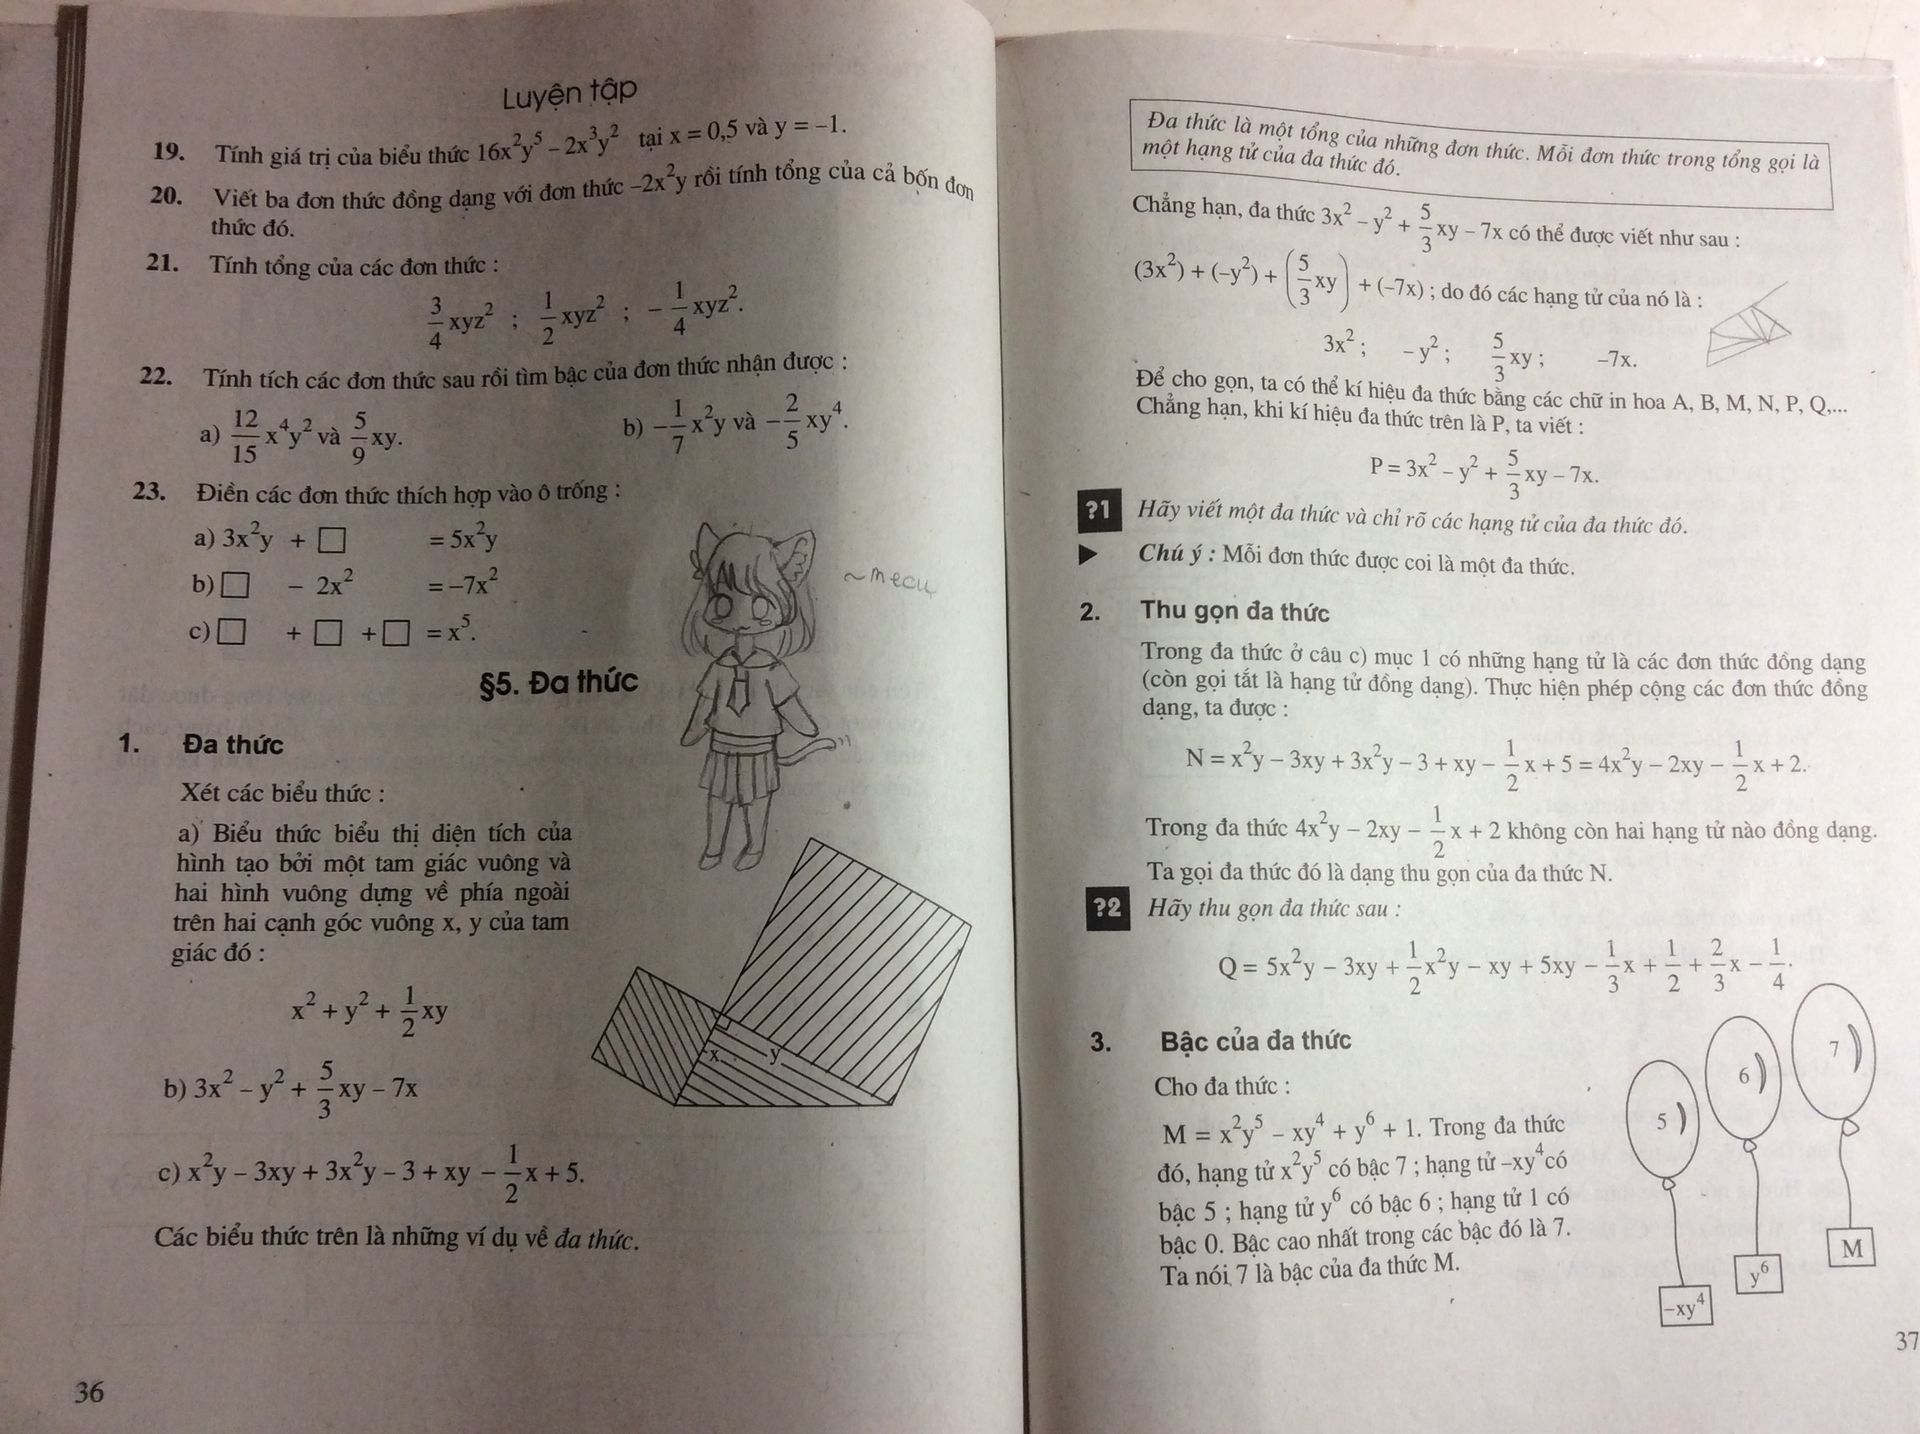 Luyện tập
19. Tính giá trị của biểu thức 16x²y⁵ – 2x³y² tại x = 0,5 và y = –1.
20. Viết ba đơn thức đồng dạng với đơn thức –2x²y rồi tính tổng của cả bốn đơn
thức đó.
21. Tính tổng của các đơn thức :
3/4 xyz² ; 1/2 xyz² ; – 1/4 xyz².
22. Tính tích các đơn thức sau rồi tìm bậc của đơn thức nhận được :
a) 12/15 x⁴y² và 5/9 xy. b) – 1/7 x²y và – 2/5 xy⁴.
23. Điền các đơn thức thích hợp vào ô trống :
a) 3x²y + □ = 5x²y
b) □ – 2x² = –7x²
c) □ + □ + □ = x⁵.
~mecu
§5. Đa thức
1. Đa thức
Xét các biểu thức :
a) Biểu thức biểu thị diện tích của
hình tạo bởi một tam giác vuông và
hai hình vuông dựng về phía ngoài
trên hai cạnh góc vuông x, y của tam
giác đó :
x² + y² + 1/2 xy
x y
b) 3x² – y² + 5/3 xy – 7x
c) x²y – 3xy + 3x²y – 3 + xy – 1/2 x + 5.
Các biểu thức trên là những ví dụ về đa thức.
36
Đa thức là một tổng của những đơn thức. Mỗi đơn thức trong tổng gọi là
một hạng tử của đa thức đó.
Chẳng hạn, đa thức 3x² – y² + 5/3 xy – 7x có thể được viết như sau :
(3x²) + (–y²) + (5/3 xy) + (–7x) ; do đó các hạng tử của nó là :
3x² ; – y² ; 5/3 xy ; –7x.
Để cho gọn, ta có thể kí hiệu đa thức bằng các chữ in hoa A, B, M, N, P, Q,...
Chẳng hạn, khi kí hiệu đa thức trên là P, ta viết :
P = 3x² – y² + 5/3 xy – 7x.
?1 Hãy viết một đa thức và chỉ rõ các hạng tử của đa thức đó.
▶ Chú ý : Mỗi đơn thức được coi là một đa thức.
2. Thu gọn đa thức
Trong đa thức ở câu c) mục 1 có những hạng tử là các đơn thức đồng dạng
(còn gọi tắt là hạng tử đồng dạng). Thực hiện phép cộng các đơn thức đồng
dạng, ta được :
N = x²y – 3xy + 3x²y – 3 + xy – 1/2 x + 5 = 4x²y – 2xy – 1/2 x + 2.
Trong đa thức 4x²y – 2xy – 1/2 x + 2 không còn hai hạng tử nào đồng dạng.
Ta gọi đa thức đó là dạng thu gọn của đa thức N.
?2 Hãy thu gọn đa thức sau :
Q = 5x²y – 3xy + 1/2 x²y – xy + 5xy – 1/3 x + 1/2 + 2/3 x – 1/4.
3. Bậc của đa thức
Cho đa thức :
M = x²y⁵ – xy⁴ + y⁶ + 1. Trong đa thức
đó, hạng tử x²y⁵ có bậc 7 ; hạng tử –xy⁴ có
bậc 5 ; hạng tử y⁶ có bậc 6 ; hạng tử 1 có
bậc 0. Bậc cao nhất trong các bậc đó là 7.
Ta nói 7 là bậc của đa thức M.
5 6 7
–xy⁴ y⁶ M
37